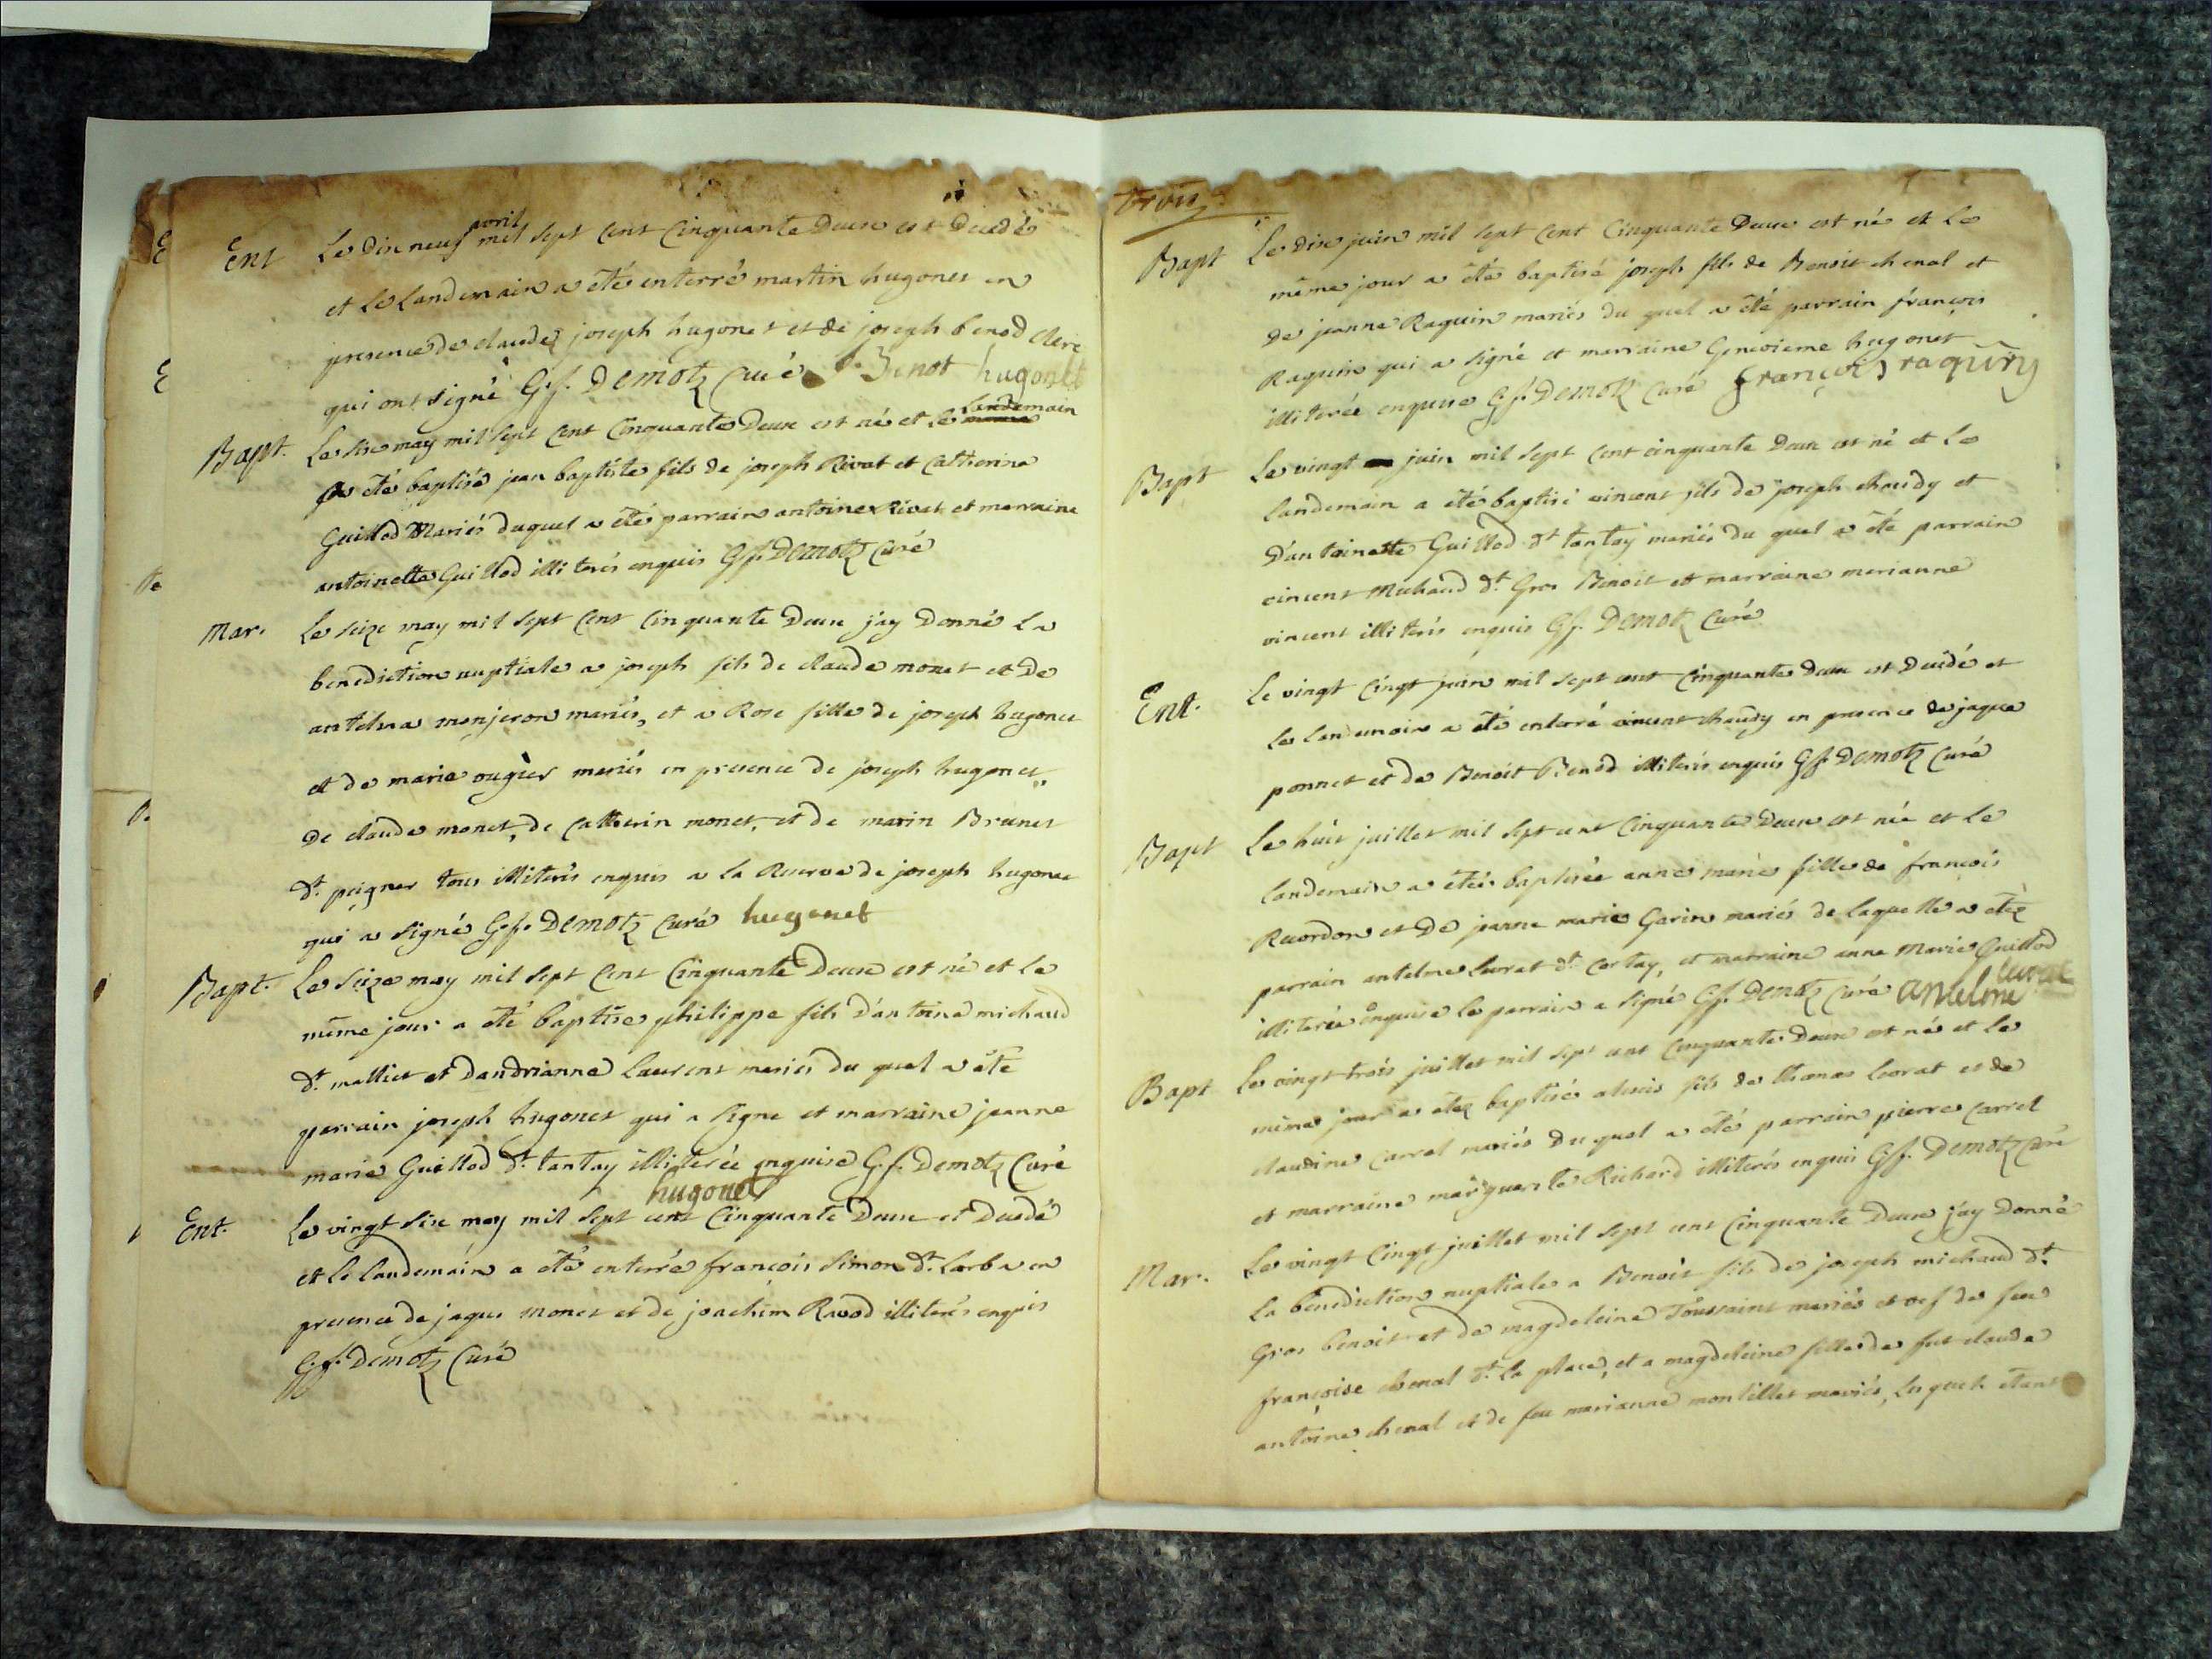 Ent Le dix neuf avril mil sept cent cinquante deux est decedé
et le landemain a été enterré martin hugonet en
presence de claude joseph hugonet et de joseph benod clerc
qui ont signé G.f. Demotz curé J. Benot hugonet
Bapt. Le six may mil sept cent cinquante deux est né et le landemain
a été baptisé jean baptiste fils de joseph Rivat et catherine
Guillod Mariés duquel a été parrain antoine Rivat et marraine
antoinette Guillod illiterés enquis G.f. Demotz curé
Mar. Le seize may mil sept cent cinquante deux j'ay donné la
benediction nuptiale a joseph fils de claude monet et de
antelma monjeron mariés, et a Rose fille de joseph hugonet
et de marie ougier mariés en presence de joseph hugonet,
de claude monet, de catherin monet, et de marin Brunet
dt. peigner tous illiterés enquis a la Reserve de joseph hugonet
qui a signé G.f. Demotz curé hugonet
Bapt. Le seize may mil sept cent cinquante deux est né et le
même jour a été baptisé philippe fils d'antoine michaud
dt. malliet et dandrianne Laurent mariés du quel a été
parrain joseph hugonet qui a signé et marraine jeanne
marie Guillod dt. tantay illiterée enquise G.f. Demotz Curé
hugonet
Ent. Le vingt six may mil sept cent cinquante deux et decedé
et le landemain a été enterré françois Simon dt. Larba en
presence de jaques monet et de joachim Ravod illiterés enquis
G.f. Demotz Curé
trois
Bapt Le dix juin mil sept cent cinquante deux est né et le
même jour a été baptisé joseph fils de Benoit chenal et
de jeanne Raquin mariés du quel a été parrain françois
Raquin qui a signé et marraine Genevieme hugonet
illiterée enquise G.f. Demotz curé françois raquin
Bapt Le vingt juin mil sept cent cinquante deux est né et le
landemain a été baptisé vincent fils de joseph chaudy et
d'antoinette Guillod dt. tantay mariés du quel a été parrain
vincent Michaud dt. Gros Benoit et marraine marianne
vincent illiterés enquis G.f. Demotz Curé
Ent. Le vingt cinqt juin mil sept cent cinquante deux est decedé et
le landemain a été enterré vincent chaudy en presence de jaque
ponnet et de Benoit Benod illiterés enquis G.f. Demotz Curé
Bapt Le huit juillet mil sept cent cinquante deux est née et le
landemain a étée baptisée anne marie fille de françois
Reverdon et de jeanne marie Garin mariés de laquelle a été
parrain antelme Curat dt. Certay, et marraine anne Marie Guillod
illiterée enquise le parrain a signé G.f. Demotz Curé antelme curat
Bapt Le vingt trois juillet mil sept cent cinquante deux est né et le
même jour a été baptisé alexis fils de thomas Corat et de
claudine carrel mariés du quel a été parrain pierre carrel
et marraine marguerite Richard illiterés enquis G.f. Demotz Curé
Mar. Le vingt cinqt juillet mil sept cent cinquante deux j'ay donné
la bénédiction nuptiale a Benoit fils de joseph michaud dt.
Gros benoit et de magdeleine Toussaint mariés et vef de feue
françoise chenal dt. la place, et a magdeleine fille de fut claude
antoine chenal et de feu marianne montillet mariés, lesquels étant